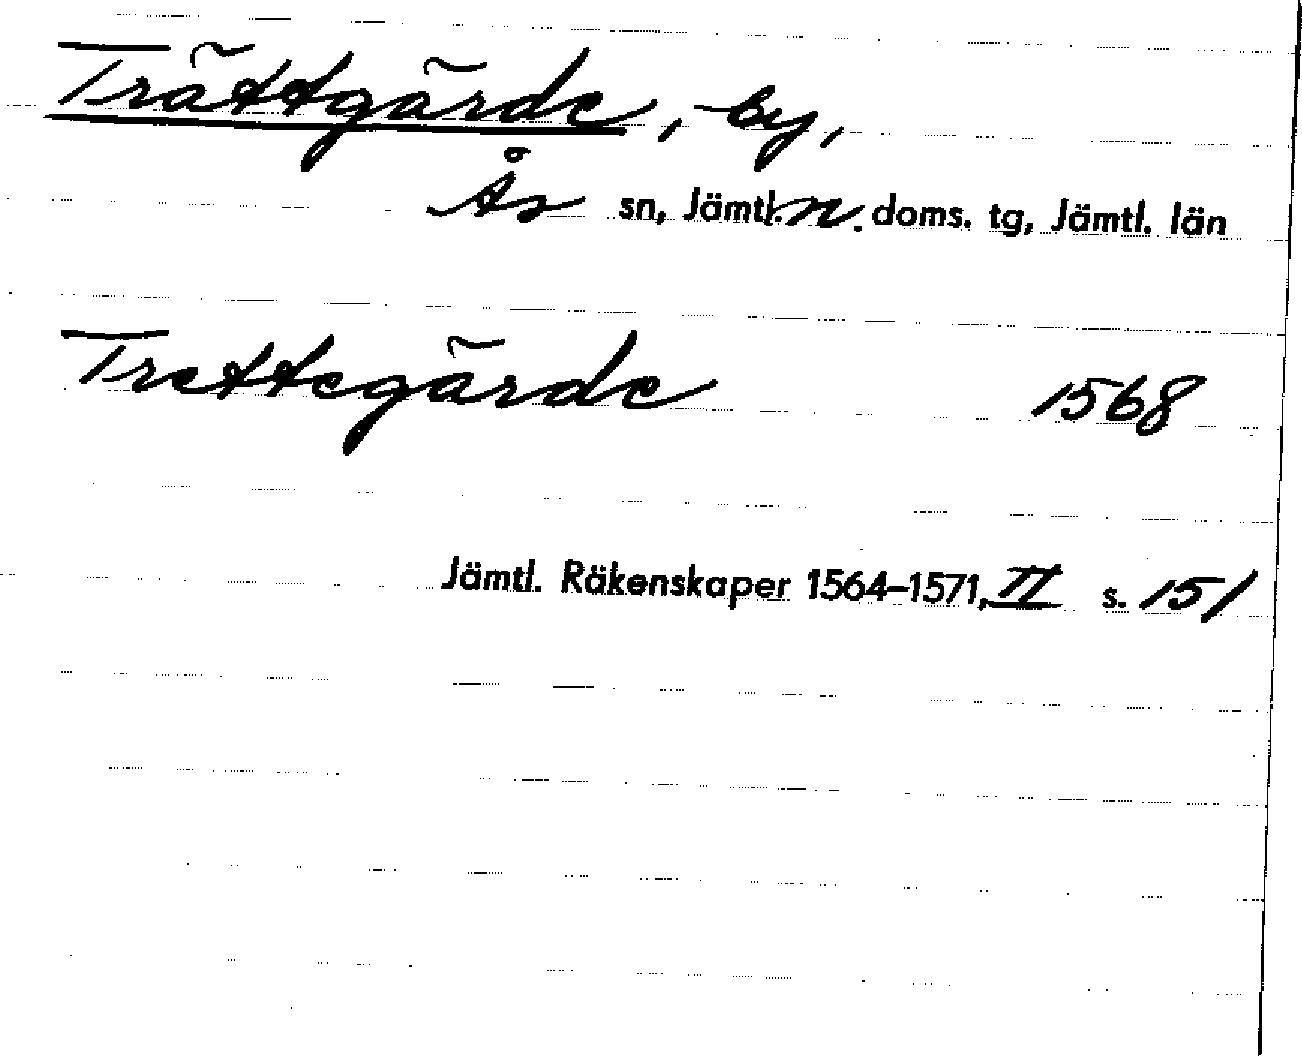 Trättgärde, by,
Ås sn, Jämtl. n. doms. tg, Jämtl. län
Trettegärde 1568
Jämtl. Räkenskaper 1564–1571, II s. 151